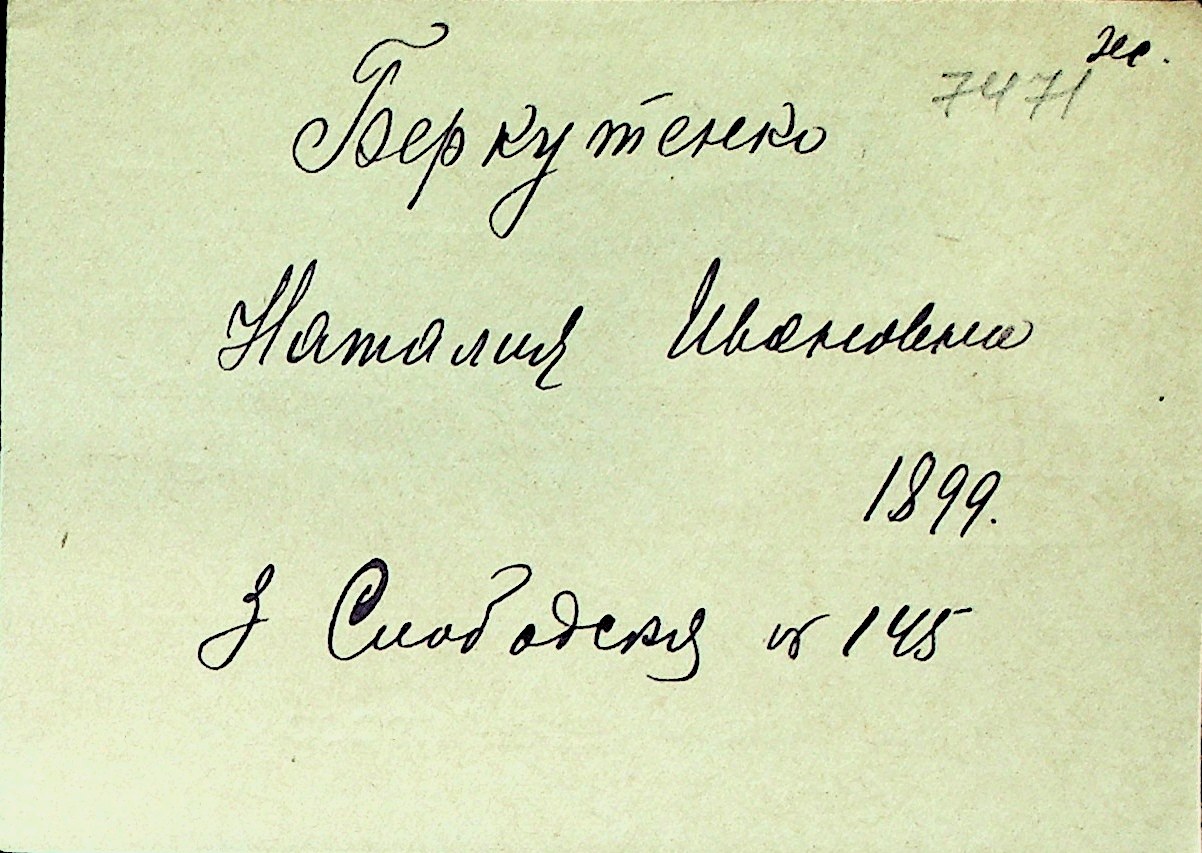 ж.
7471
Беркутенко
Наталия Ивановна
1899.
3 Слободская № 145